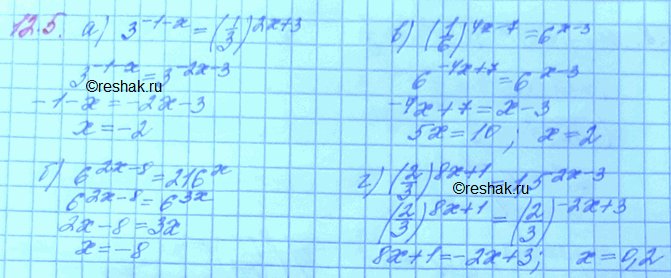 12.5. а) 3^{-1-x} = (1/3)^{2x+3}
3^{-1-x} = 3^{-2x-3}
-1-x = -2x-3
x = -2
б) 6^{2x-8} = 216^x
6^{2x-8} = 6^{3x}
2x-8 = 3x
x = -8
в) (1/6)^{4x-7} = 6^{x-3}
6^{-4x+7} = 6^{x-3}
-4x+7 = x-3
5x = 10; x = 2
г) (2/3)^{8x+1} = 1,5^{2x-3}
(2/3)^{8x+1} = (2/3)^{-2x+3}
8x+1 = -2x+3; x = 0,2
©Reshak.ru
©Reshak.ru
©Reshak.ru
©Reshak.ru